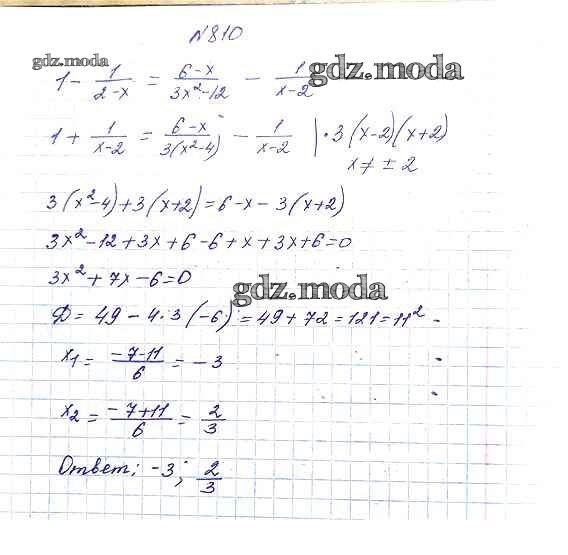 №810
gdz.moda
gdz.moda
1 - 1/(2-x) = (6-x)/(3x²-12) - 1/(x-2)
1 + 1/(x-2) = (6-x)/(3(x²-4)) - 1/(x-2) | · 3(x-2)(x+2)
x ≠ ± 2
3(x²-4)+3(x+2)=6-x-3(x+2)
3x²-12+3x+6-6+x+3x+6=0
3x²+7x-6=0
gdz.moda
D = 49 - 4·3(-6) = 49+72 = 121 = 11²
x₁ = (-7-11)/6 = -3
x₂ = (-7+11)/6 = 2/3
Ответ: -3; 2/3